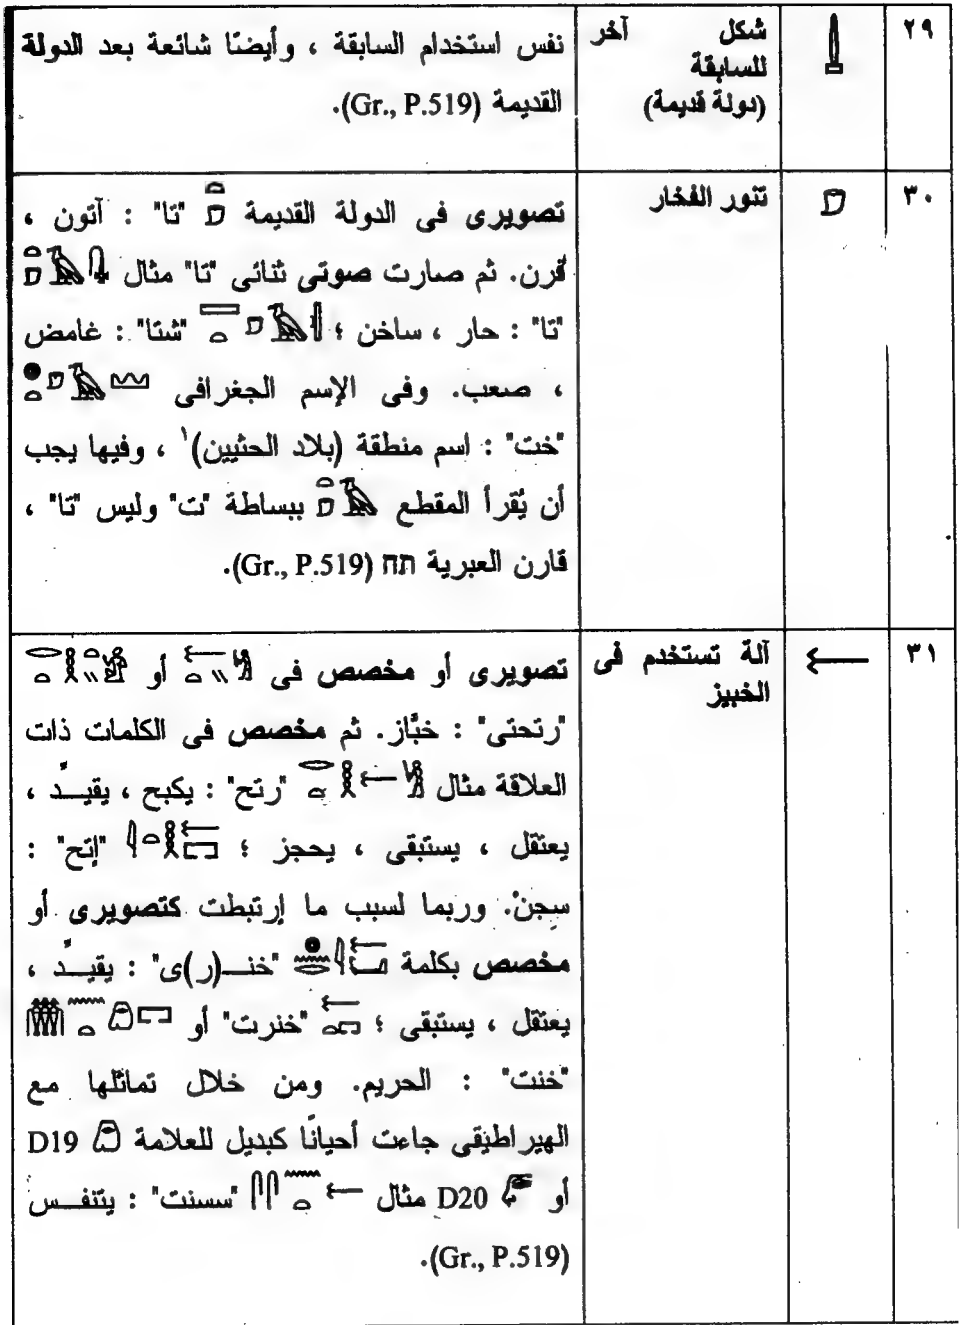 ٢٩
شكل آخر
للسابقة
(دولة قديمة)
نفس استخدام السابقة ، وأيضًا شائعة بعد الدولة
القديمة (Gr., P.519).
٣٠
تنور الفخار
تصويرى فى الدولة القديمة "تا" : آتون ،
قرن. ثم صارت صوتى ثنائى "تا" مثال
"تا" : حار ، ساخن ؛ "شتا" : غامض
، صعب. وفى الإسم الجغرافى
"خت" : اسم منطقة (بلاد الحثيين)١ ، وفيها يجب
أن يُقرأ المقطع ببساطة "ت" وليس "تا" ،
قارن العبرية (Gr., P.519).
٣١
آلة تستخدم فى
الخبيز
تصويرى أو مخصص فى أو
"رتحتى" : خبَّاز. ثم مخصص فى الكلمات ذات
العلاقة مثال "رتح" : يكبح ، يقيدَّ ،
يعتقل ، يستبقى ، يحجز ؛ "إتح" :
سِجنْ. وربما لسبب ما إرتبطت كتصويرى أو
مخصص بكلمة "خنـ(ر)ى" : يقيدَّ ،
يعتقل ، يستبقى ؛ "خنرت" أو
"خنت" : الحريم. ومن خلال تماثلها مع
الهيراطيقى جاءت أحيانًا كبديل للعلامة D19
أو D20 مثال "سسنت" : يتنفس
(Gr., P.519).